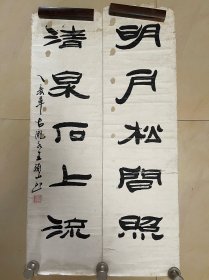 明月松間照
清泉石上流
乙亥年